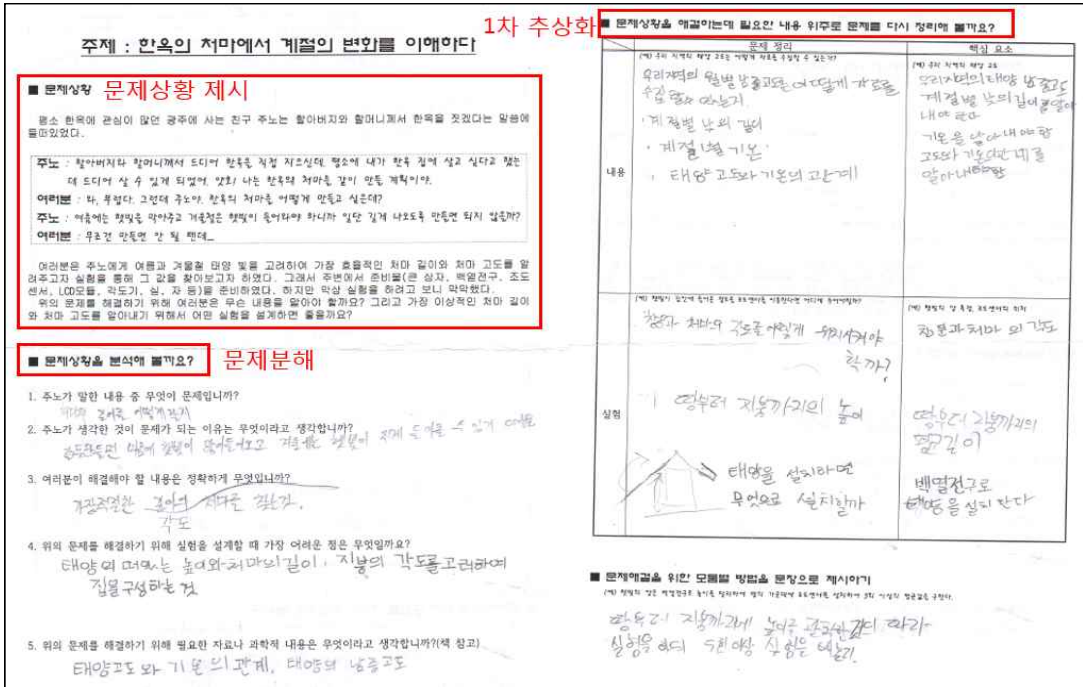 주제 : 한옥의 처마에서 계절의 변화를 이해하다
■ 문제상황 문제상황 제시
평소 한옥에 관심이 많던 광주에 사는 친구 주노는 할아버지와 할머니께서 한옥을 짓겠다는 말씀에
들떠있었다.
주노 : 할아버지와 할머니께서 드디어 한옥을 직접 지으신데. 평소에 내가 한옥 집에 살고 싶다고 했는
데 드디어 살 수 있게 되었어. 앗호! 나는 한옥의 처마를 같이 만들 계획이야.
여러분 : 와, 부럽다. 그런데 주노야. 한옥의 처마를 어떻게 만들고 싶은데?
주노 : 여름에는 햇빛을 막아주고 겨울철은 햇빛이 들어와야 하니까 일단 길게 나오도록 만들면 되지 않을까?
여러분 : 무조건 만들면 안 될 텐데_
여러분은 주노에게 여름과 겨울철 태양 빛을 고려하여 가장 효율적인 처마 길이와 처마 고도를 알
려주고자 실험을 통해 그 값을 찾아보고자 하였다. 그래서 주변에서 준비물(큰 상자, 백열전구, 조도
센서, LCD모듈, 각도기, 실, 자 등)을 준비하였다. 하지만 막상 실험을 하려고 보니 막막했다.
위의 문제를 해결하기 위해 여러분은 무슨 내용을 알아야 할까요? 그리고 가장 이상적인 처마 길이
와 처마 고도를 알아내기 위해서 어떤 실험을 설계하면 좋을까요?
■ 문제상황을 분석해 볼까요? 문제분해
1. 주노가 말한 내용 중 무엇이 문제입니까?
길이를 어떻게
2. 주노가 생각한 것이 문제가 되는 이유는 무엇이라고 생각합니까?
햇빛이
3. 여러분이 해결해야 할 내용은 정확하게 무엇입니까?
가장적절한
각도
4. 위의 문제를 해결하기 위해 실험을 설계할 때 가장 어려운 점은 무엇일까요?
태양의 높이와 처마의 길이, 지붕의 각도를 고려하여
집을 구성하는 것
5. 위의 문제를 해결하기 위해 필요한 자료나 과학적 내용은 무엇이라고 생각합니까?(책 참고)
태양고도와 기온의 관계, 태양의 남중고도
1차 추상화 ■ 문제상황을 해결하는데 필요한 내용 위주로 문제를 다시 정리해 볼까요?
문제 정리 핵심 요소
내용
(예) 우리 지역의 태양 고도는 어떻게 자료를 수집할 수 있는가?
우리지역의 월별 남중고도는 어떻게 자료를
수집할 수 있는지
· 계절별 낮의 길이
· 계절별 기온
· 태양고도와 기온의 관계
(예) 우리 지역의 태양 고도
우리지역의 태양 남중고도
계절별 낮의 길이를 알아
내야 한다
기온을 알아내야 함
고도와 기온의 관계를
알아내야함
실험
창문과 처마의 각도를 어떻게 위치시켜야
할까?
땅부터 지붕까지의 높이
태양을 설치하려면
무엇으로 설치할까
창문과 처마의 각도
땅부터 지붕까지의
평균길이
백열전구로
태양을 설치한다
■ 문제해결을 위한 모둠별 방법을 문장으로 제시하기
땅부터 지붕까지에